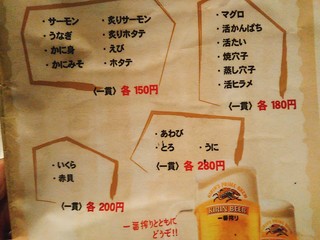 ・サーモン ・炙りサーモン
・うなぎ ・炙りホタテ
・かに身 ・えび
・かにみそ ・ホタテ
〈一貫〉 各150円
・マグロ
・活かんぱち
・活たい
・焼穴子
・蒸し穴子
・活ヒラメ
〈一貫〉 各180円
・あわび
・とろ ・うに
〈一貫〉 各280円
・いくら
・赤貝
〈一貫〉 各200円
一番搾りとともに
どうぞ!!
KIRIN BEER
一番搾り
KIRIN BEER